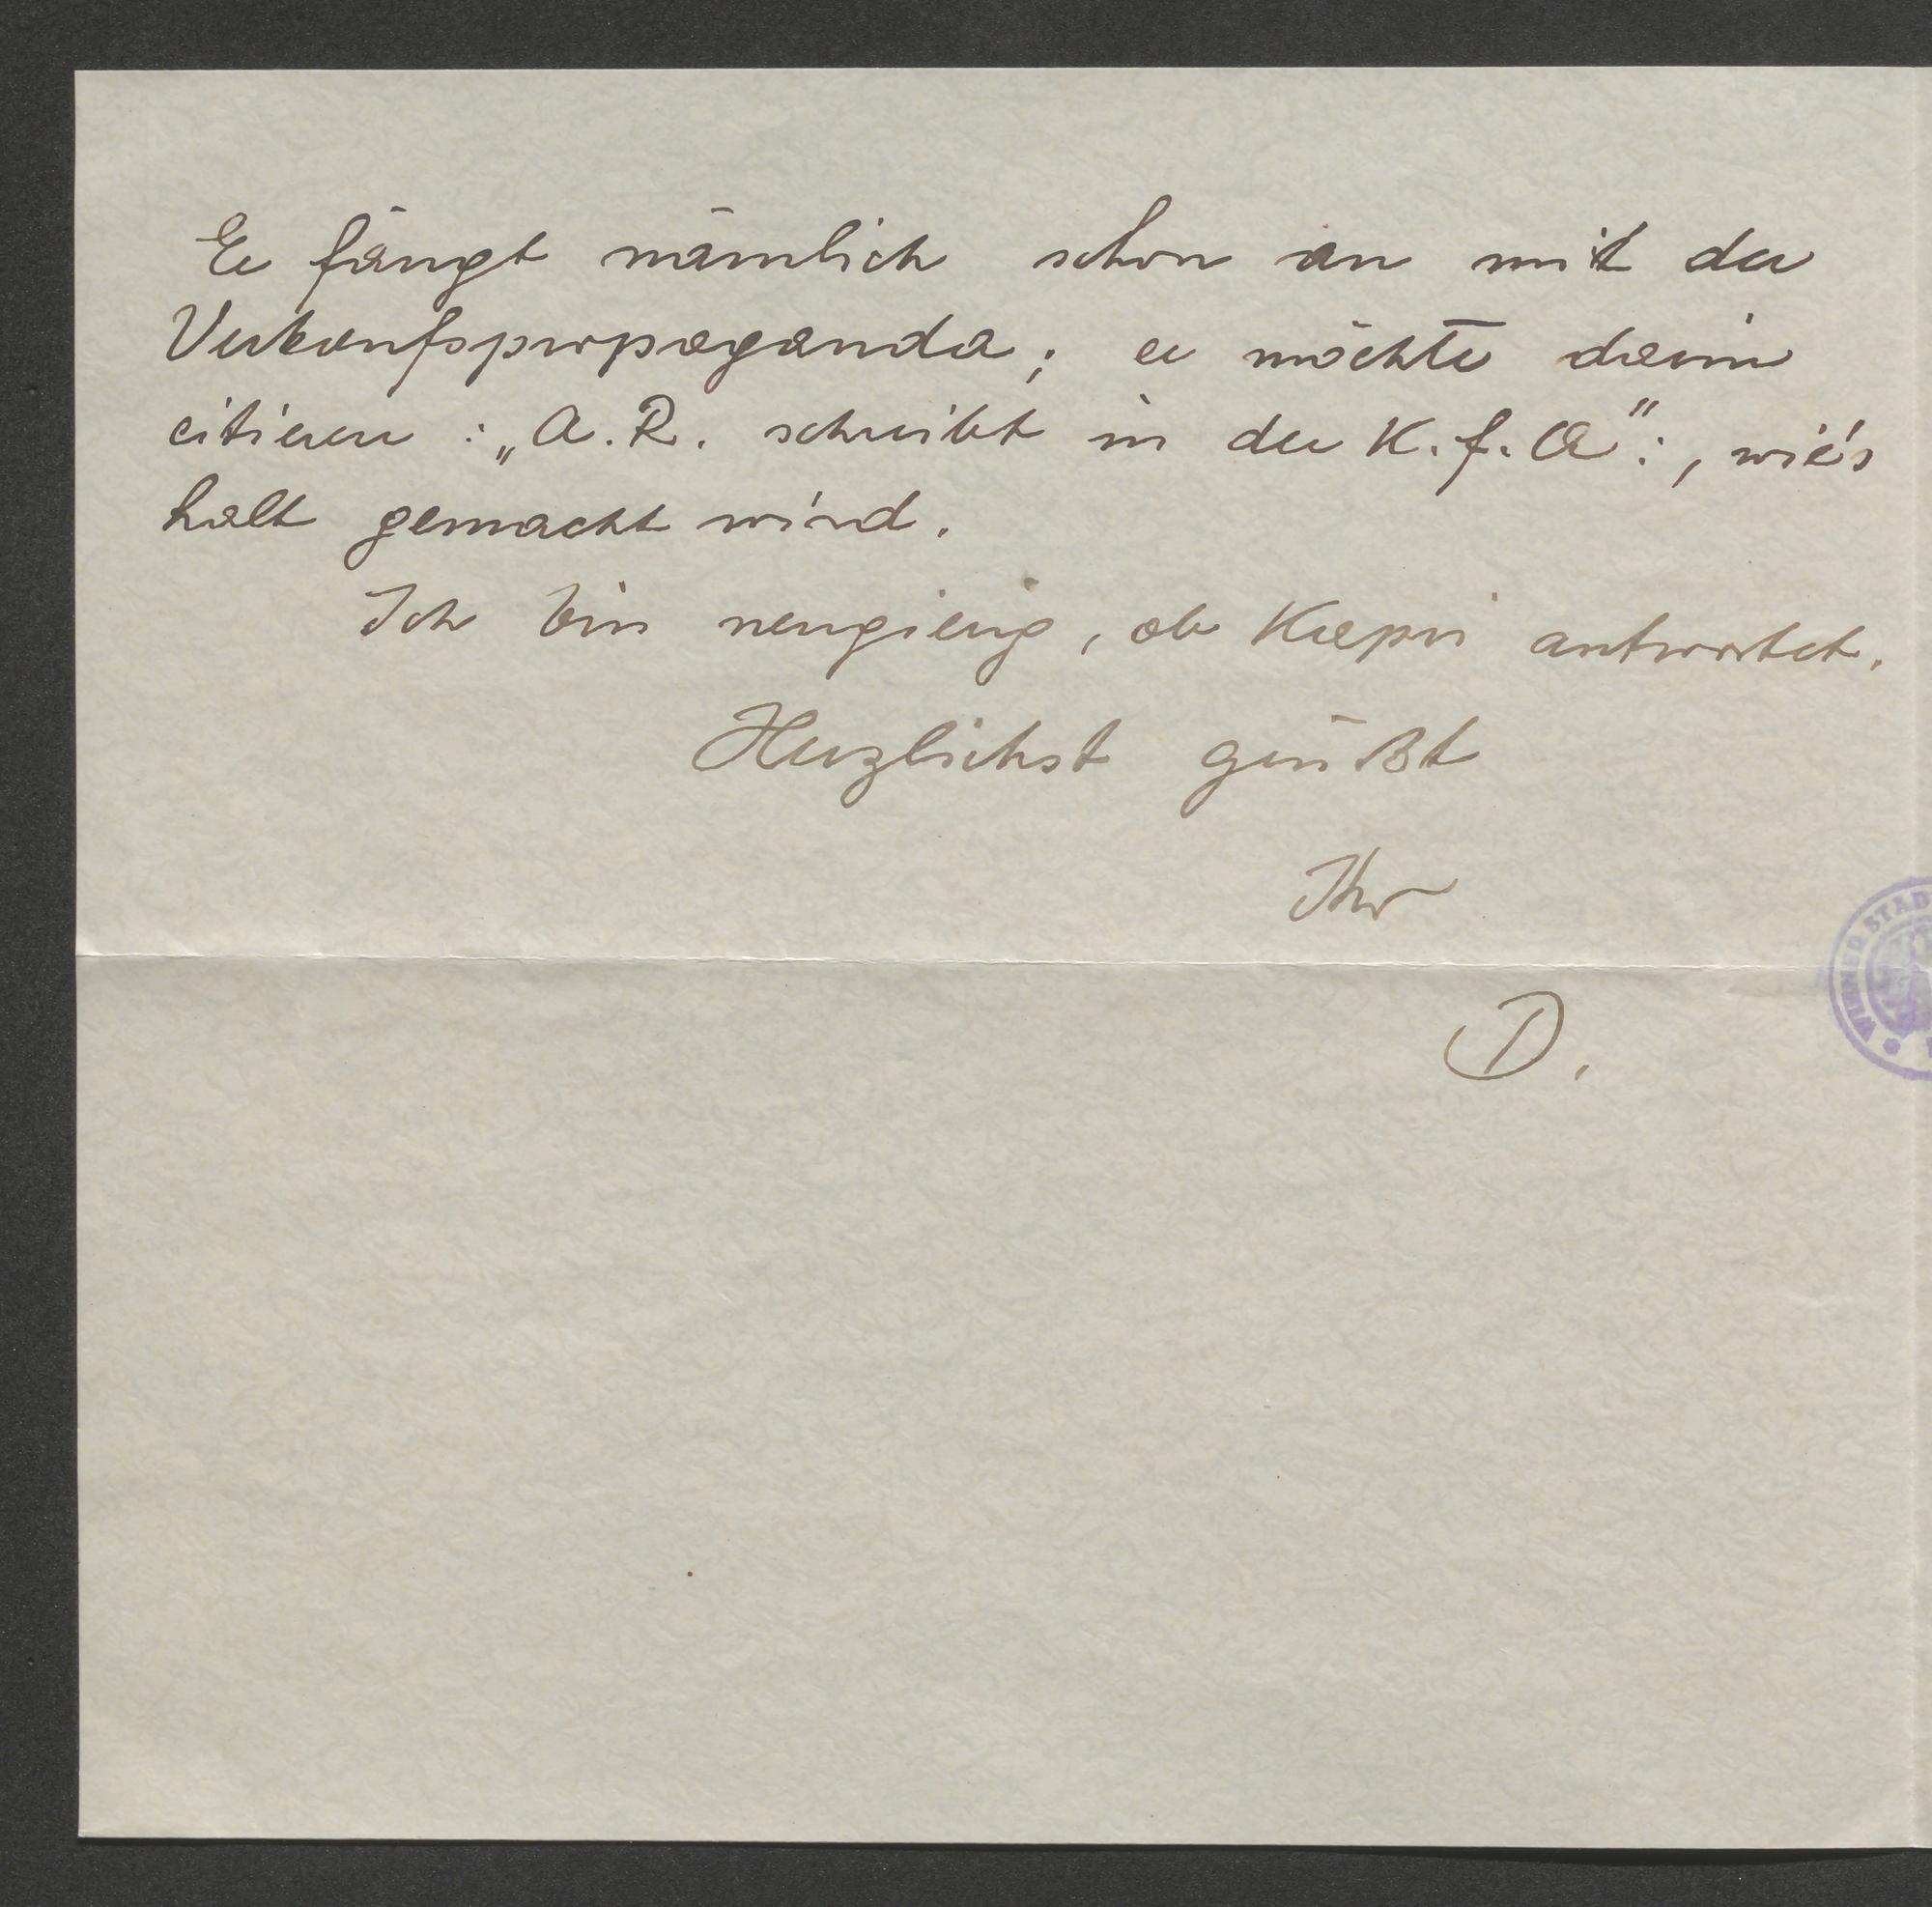 Er fängt nämlich schon an mit der
Verkaufspropaganda; er möchte darin
citieren: „A. R. schreibt in der K. f. A": , wie's
halt gemacht wird.
Ich bin neugierig, ob antwortet.
Herzlichst grüßt
Ihr
D.
WIENER STAD